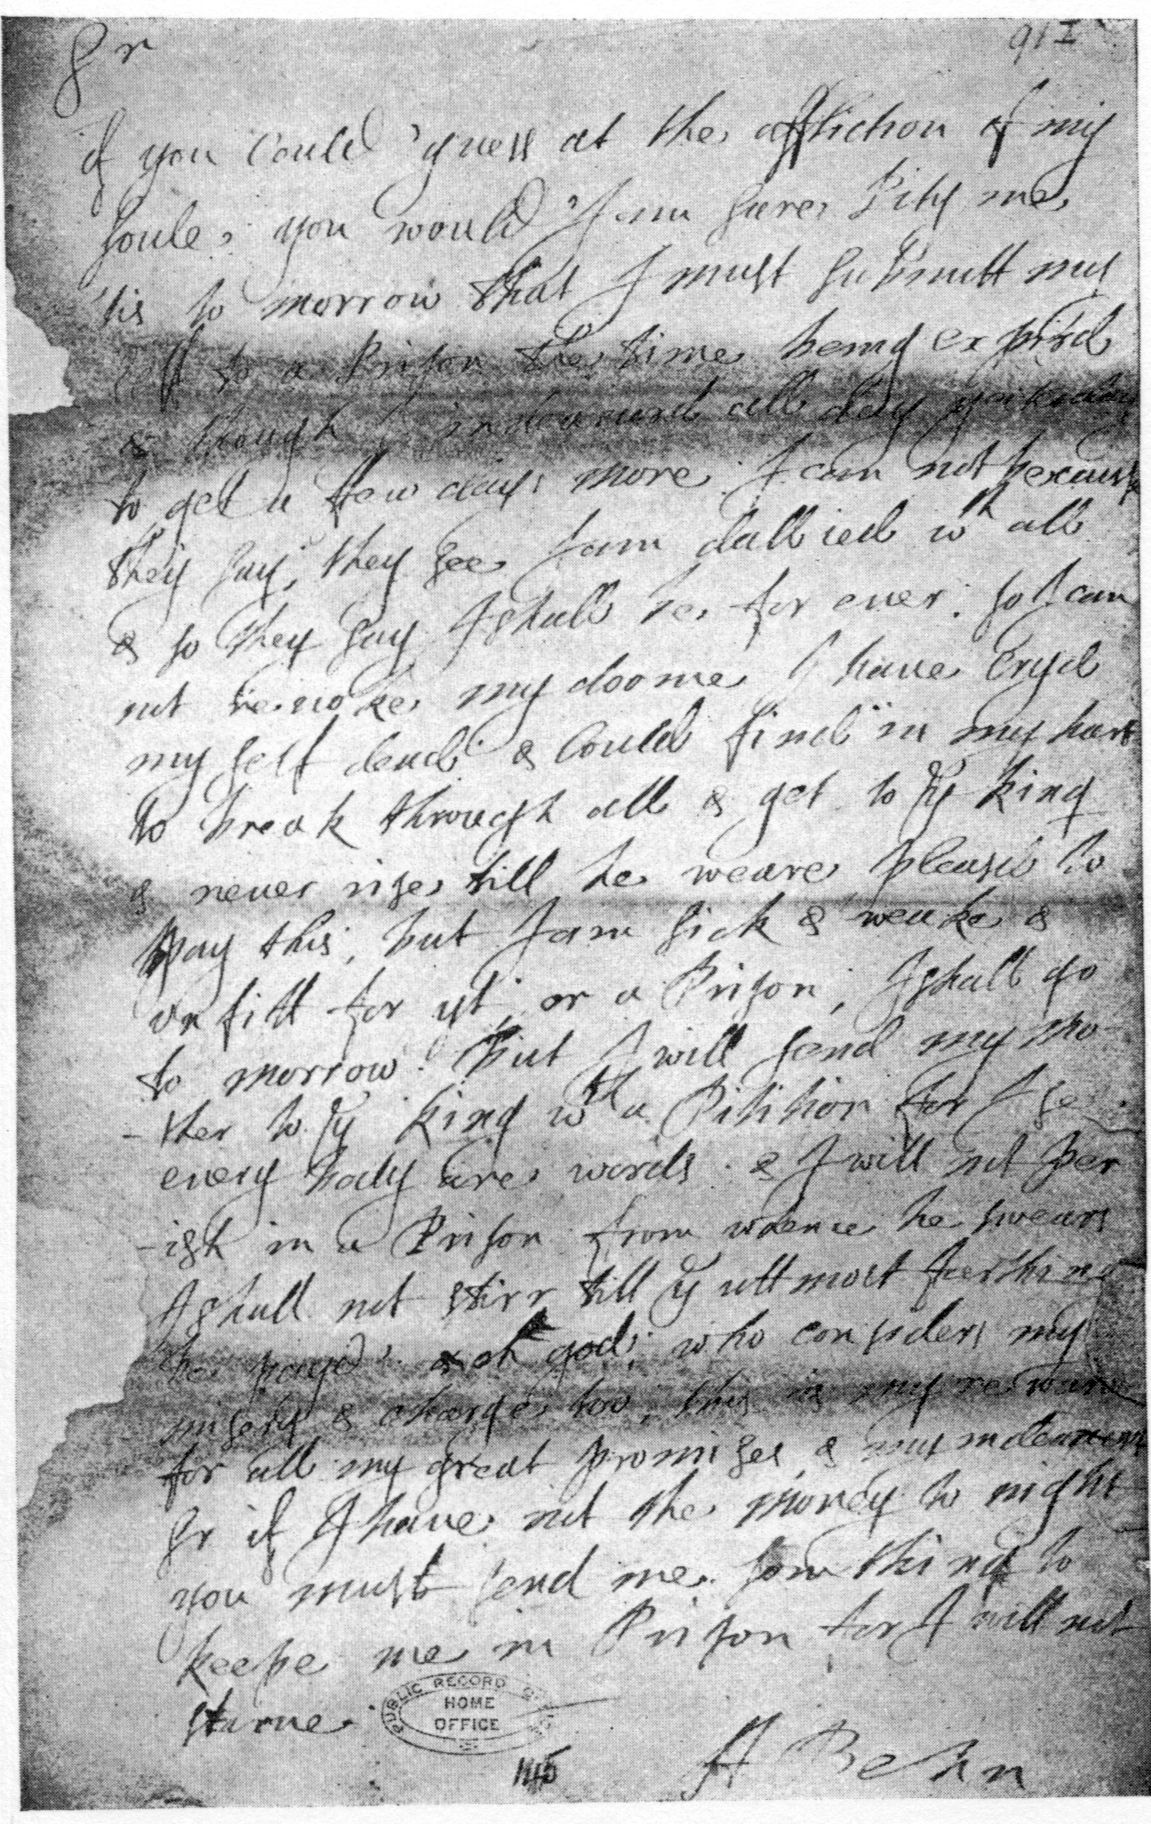 Sr
91I
if you could guess at the affliction of my
soule, you would I am sure, Pity me,
tis to morrow that I must submitt my
self to a Prison the time being expird
& though I indeauerd all day yesterday
to gett a ffew days more I can not because
they say, they see I am dallied wth all
& so they say I shall be for euer. so I can
not reuoke my doome I haue cryd
my self dead & could find in my hart
to break through all & get to ye king
& neuer rise till he weare pleasd to
pay this, but I am sick & weake &
vnfitt for yt, or a Prison, I shall go
to morrow. But I will send my mo
-ther to ye king wth a Pitition for I see
euery body are words & I will not per
-ish in a Prison from whence he swears
I shall not stirr till ye uttmost farthing
be payd & oh god, who considers my
misery & charge too, this is my reward
for all my great promises, & my indeauours
Sr if I haue not the money to night
you must send me som thing to
keepe me in Prison for I will not
starue.
A Behn
PUBLIC RECORD OFFICE
HOME
OFFICE